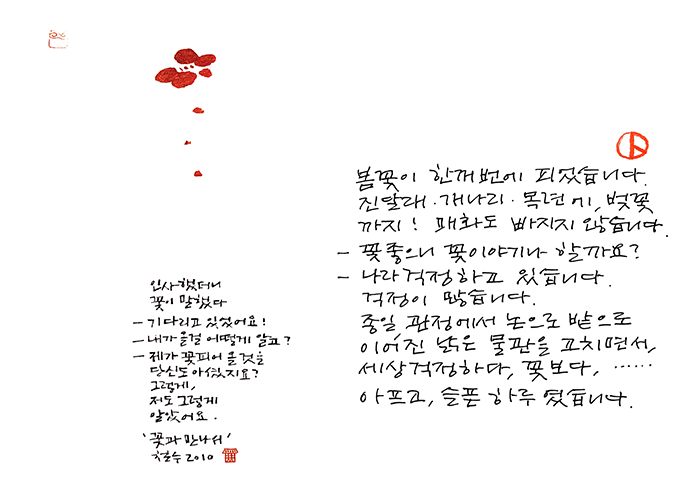 인사했더니
꽃이 말했다
- 기다리고 있었어요!
- 내가 올걸 어떻게 알고?
- 제가 꽃피어 올 것을
당신도 아셨지요?
그렇게,
저도 그렇게
알았어요.
'꽃과 만나서'
철수 2010
봄꽃이 한꺼번에 피었습니다.
진달래·개나리·목련에, 벚꽃
까지! 매화도 빠지지 않습니다.
- 꽃 좋으니 꽃이야기나 할까요?
- 나라 걱정하고 있습니다.
걱정이 많습니다.
종일, 관정에서 논으로 밭으로
이어진 낡은 물관을 고치면서,
세상걱정하다, 꽃보다, ······
아프고, 슬픈 하루였습니다.